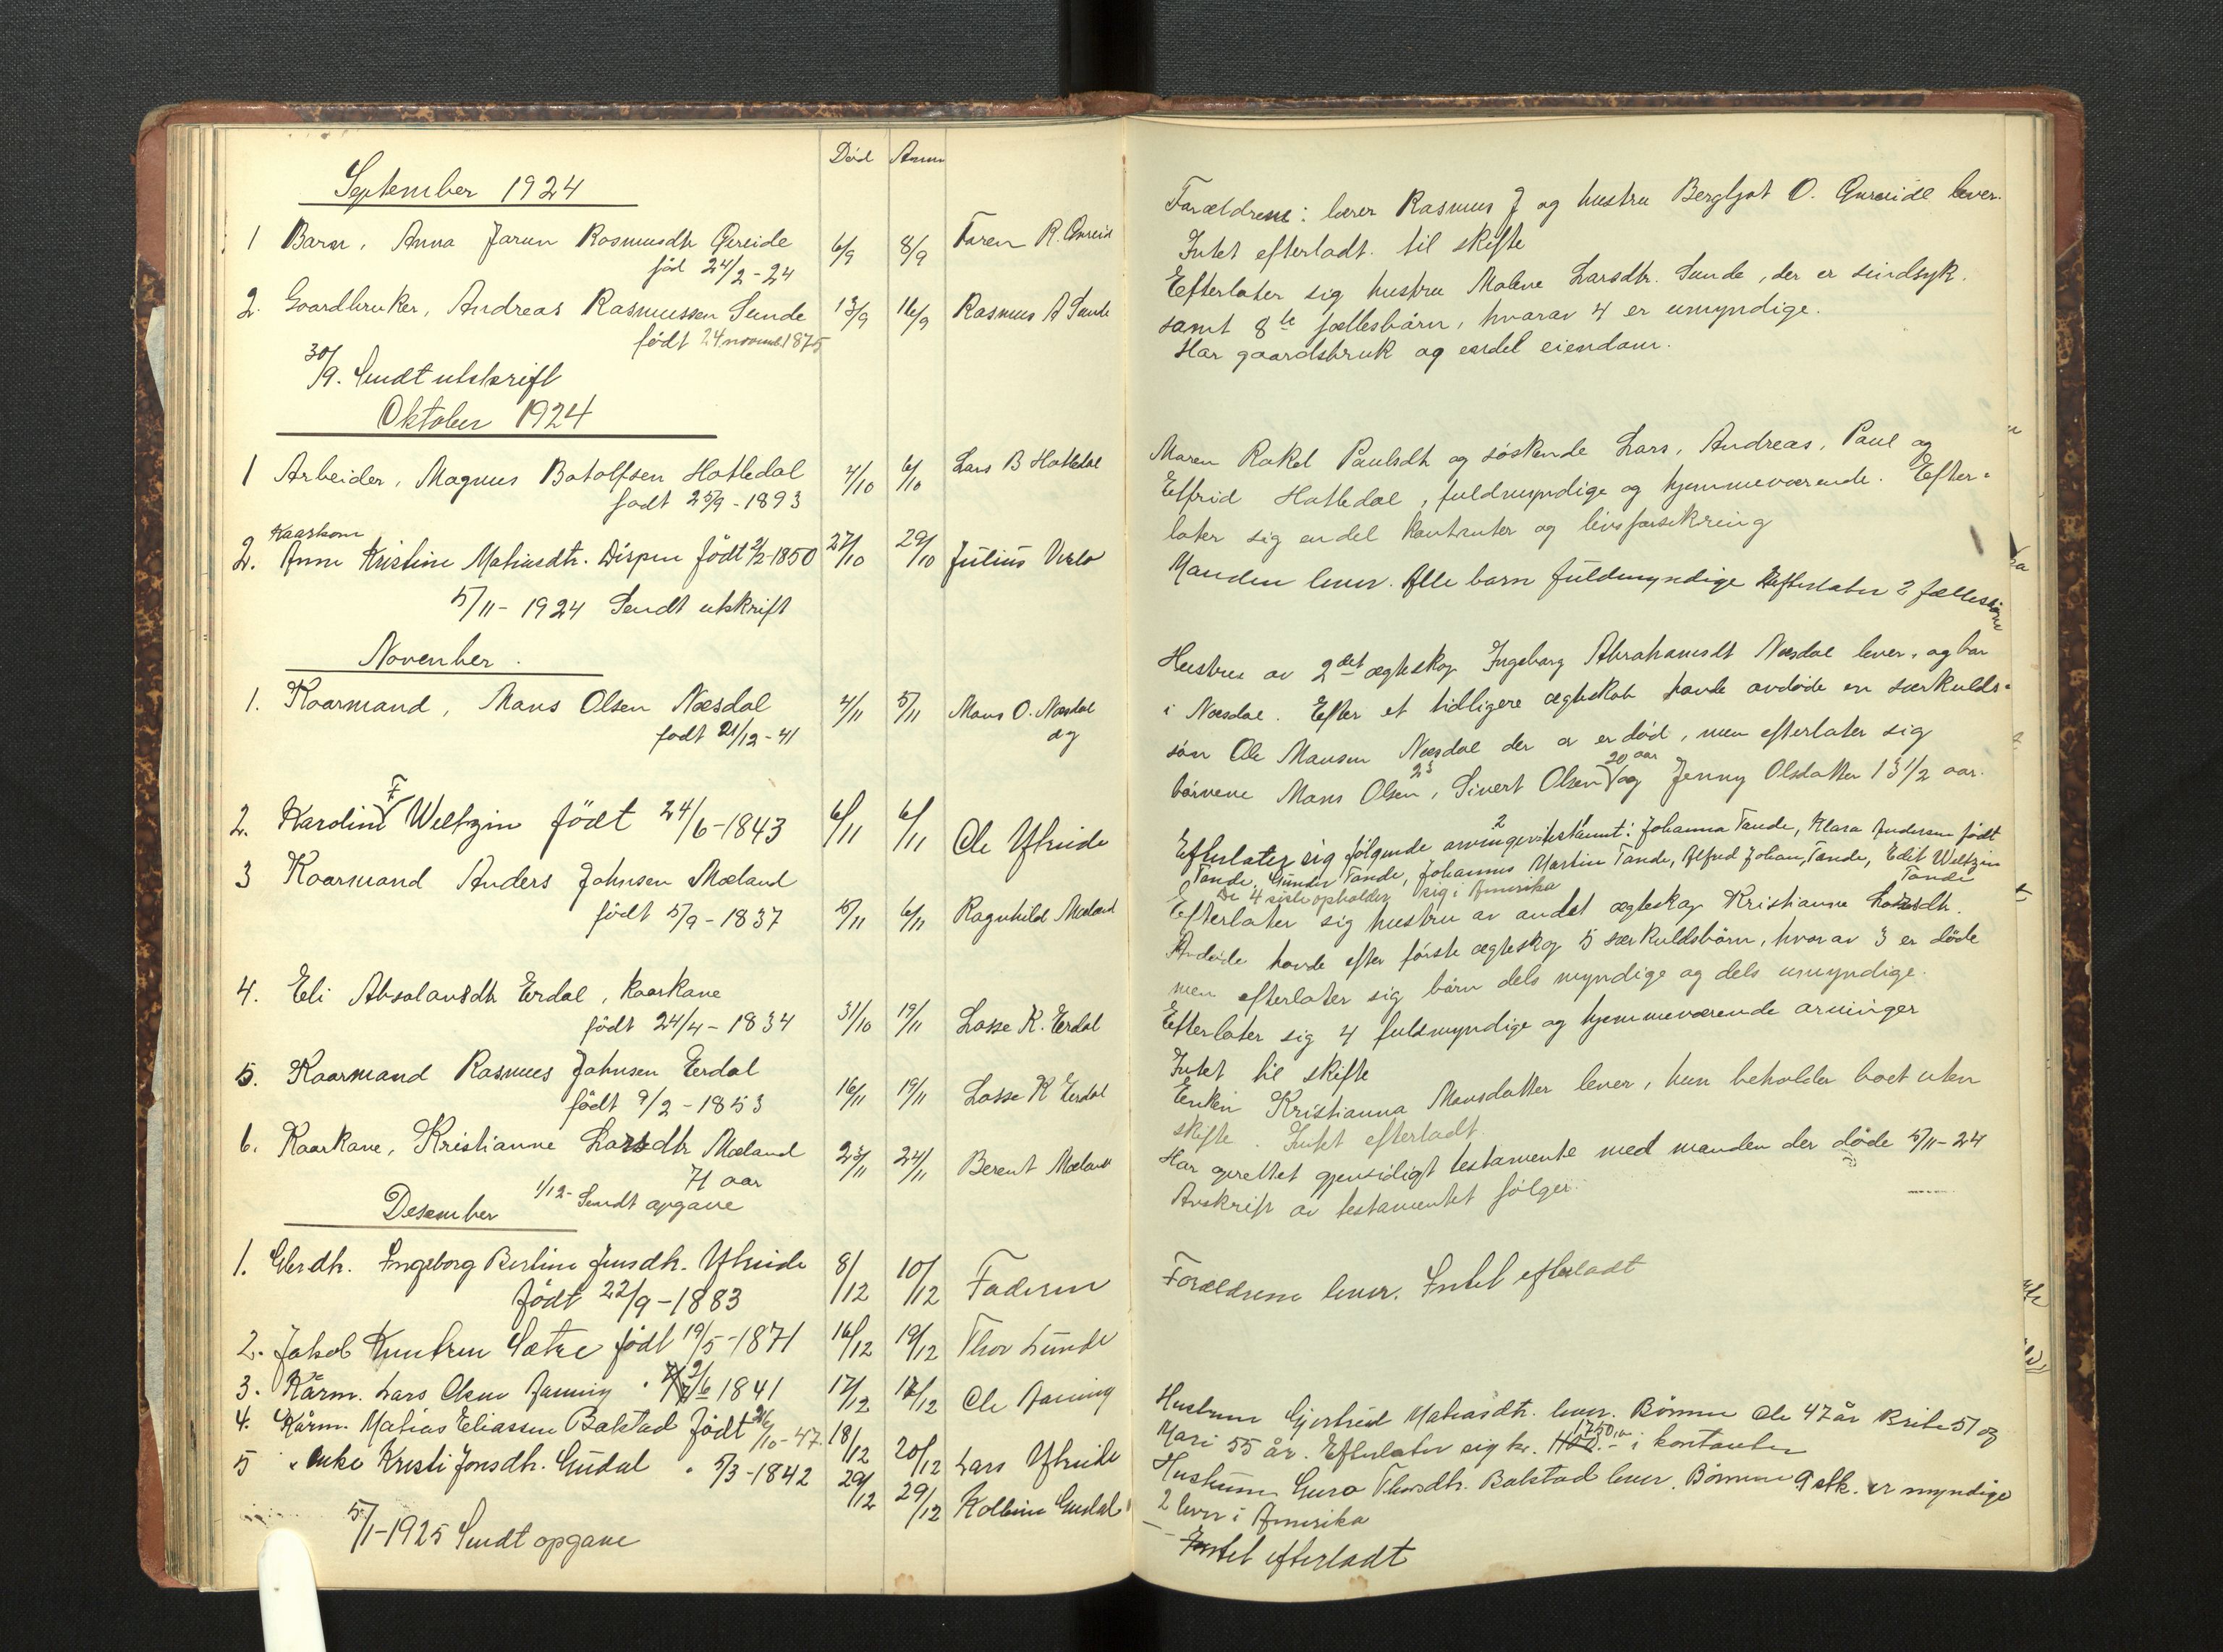 Död Anm
September 1924
1 Barn, Anna Jorun Rasmusdtr Gureide 6/9 8/9 Faren R. Gureid
föd 24/2 - 24
2. Gaardbruker, Andreas Rasmussen Sunde 13/9 16/9 Rasmus A Sunde
födt 24 novemb. 1875
30/9. Sendt utskrift
Oktober 1924
1 Arbeider, Magnus Botolfsen Hatledal 4/10 6/10 Lars B Hatledal
født 25/9 - 1893
Kaarkone
2. Anne Kristine Matiasdtr. Dispen födt 2/2 1850 27/10 29/10 Julius
5/11 - 1924 Sendt utskrift
November.
1. Kaarmand, Mons Olsen Næsdal 4/11 5/11 Mons O. Næsdal
født 21/12 - 41 og
2. Karoline F Weltzin födt 24/6 - 1843 6/11 6/11 Ole Yttreide
3 Kaarmand Anders Johnsen Mæland
født 5/9 - 1837 5/11 6/11 Ragnhild Mæland
4. Eli Absalonsdtr Erdal, kaarkane
født 24/4 - 1834 31/10 19/11 Lasse K. Erdal
5. Kaarmand Rasmus Johnsen Erdal
født 9/2 - 1853 16/11 19/11 Lasse K Erdal
6. Kaarkane, Kristianne Larsdtr Mæland 23/11 24/11 Berent Mæland
71 aar
1/12 - Sendt opgave
Desember
1. Ingeborg Berline Jensdtr. Yttreide 8/12 10/12 Faderen
födt 22/9 - 1883
2. Jakob Knutsen Sætre födt 19/5 - 1871 16/12 19/12 Thor Lunde
3. Kårm. Lars Olsen Fanning " 2/6 1841 17/12 18/12 Ole Faning
4. Kårm. Matias Eliassen Bakstad födt 26/10 - 47. 18/12 20/12 Lars Yttreide
5 " enke Kristi Jonsdtr. Gudal " 5/3 - 1842 29/12 29/12 Kolbein Gudal
5/1 - 1925 Sendt opgave
Forældrene: lærer Rasmus J og hustru Bergljot O. Gureide lever.
Intet efterladt til skifte
Efterlater sig hustru Malene Larsdtr. Sunde, der er sindsyk.
samt 8te fællesbörn, hvorav 4 er umyndige.
Har gaardsbruk og endel eiendom.
Maren Rakel Paulsdtr og söskende Lars, Andreas, Paul og
Elfrid Hatledal, fuldmyndige og hjemmeværende. Efter-
later sig endel kontanter og livsforsikring
Manden lever. Alle barn fuldmyndige Efterlater 2 fælles
Hustru av 2det ægteskap Ingeborg Abrahamsdt Næsdal lever, og bor
i Næsdal. Efter et tidligere ægteskab havde avdöde en særkulds-
sön Ole Monsen Næsdal der er död, men efterlater sig
börnene Mons Olsen 23, Sivert Olsen 20 aar og Jenny Olsdatter 13 1/2 aar.
Efterlater sig følgende arvinger Johanna Tande, Klara Andersen født
Tande, Gunder Tande, Johannes Martin Tande, Alfred Johan Tande, Edit Weltzin
Tande
De 4 siste opholder sig i Amerika
Efterlater sig hustru av andet ægteskap Kristianne Larsdtr.
Avdöde havde efter förste ægteskap 5 særkuldsbörn, hvorav 3 er döde
men efterlater sig börn dels myndige og dels umyndige.
Efterlater sig 4 fuldmyndige og hjemmeværende arvinger
Intet til skifte
Enken Kristianna Monsdatter lever, hun beholder boet uten
skifte. Intet efterladt.
Har oprettet gjensidigt testamente med manden der döde 5/11 - 24
Avskrift av testamentet følger.
Forældrene lever. Intet efterladt
Hustruen Gjertrud Matiasdtr. lever. Börnene Ole 47 år Brite 51 og
Mari 55 år. Efterlater sig kr. 1750,- i kontanter
Hustruen Guro Thorsdtr. Bakstad lever. Börnene 9 stk. er myndige
2 lever i Amerika
Intet efterladt